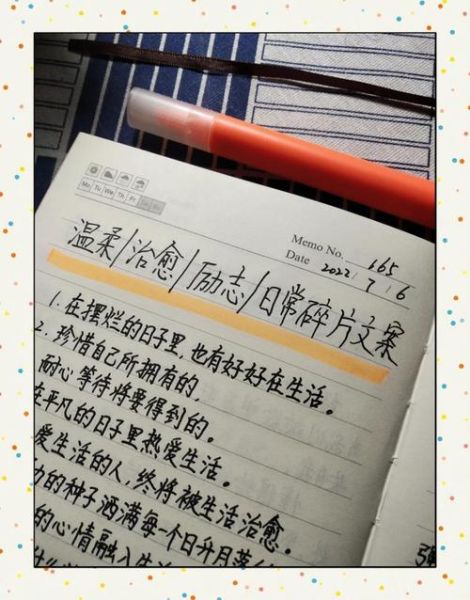 Mo Tu We Th Fr Sa Su
Memo No. 165
Date 2022 / 7 / 6
温柔/治愈/励志/日常碎片文案
1. 在摆烂的日子里,也有好好在生活。
2. 珍惜自己所拥有的,
耐心等待将要得到的。
在平凡的日子里热爱生活。
爱生活的人,终将被生活治愈。
的种子洒满每一个日升月落
的心情融入生